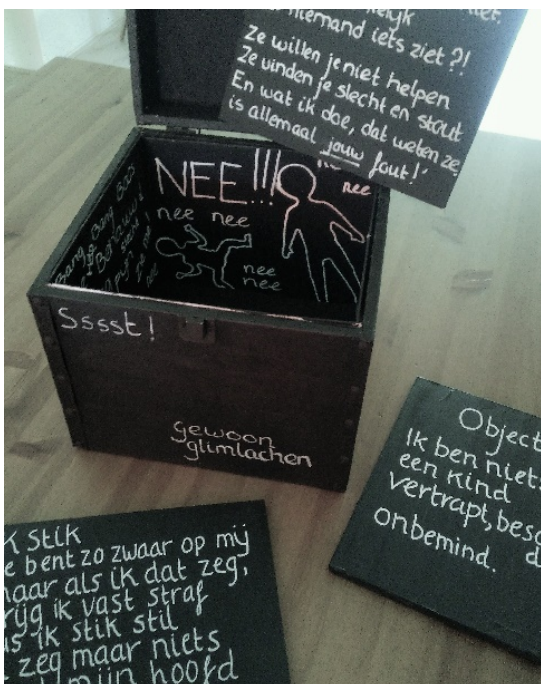 niet.
niemand iets ziet?!
Ze willen je niet helpen
Ze vinden je slecht en stout
En wat ik doe, dat weten ze,
is allemaal jouw fout!'
NEE!!!
nee
nee nee
nee
nee
Bang Bang Boos
pijn
nee
Sssst!
gewoon
glimlachen
Object
Ik ben niets
een kind
vertrapt,
onbemind.
K STIK
e bent zo zwaar op mij
aar als ik dat zeg,
rijg ik vast straf
us ik stik stil
zeg maar niets
mijn hoofd